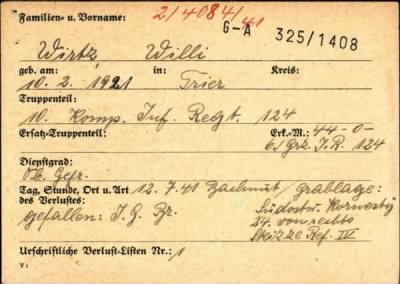 Familien- u. Vorname: 2/4084/41
G-A 325/1408
Wirtz, Willi
geb. am: in: Kreis:
10. 2. 1921 Trier
Truppenteil:
10. Komp. Inf. Regt. 124
Ersatz-Truppenteil: Erk.-M.: 44 -0-
6/Grz. I.R. 124
Dienstgrad:
Ob. Gefr.
Tag, Stunde, Ort u. Art 12.7.41 / Grablage:
des Verlustes:
gefallen: I. G. Südostw.
34. von rechts
Skizze Ref. IV
Urschriftliche Verlust-Listen Nr.: 1
V 1